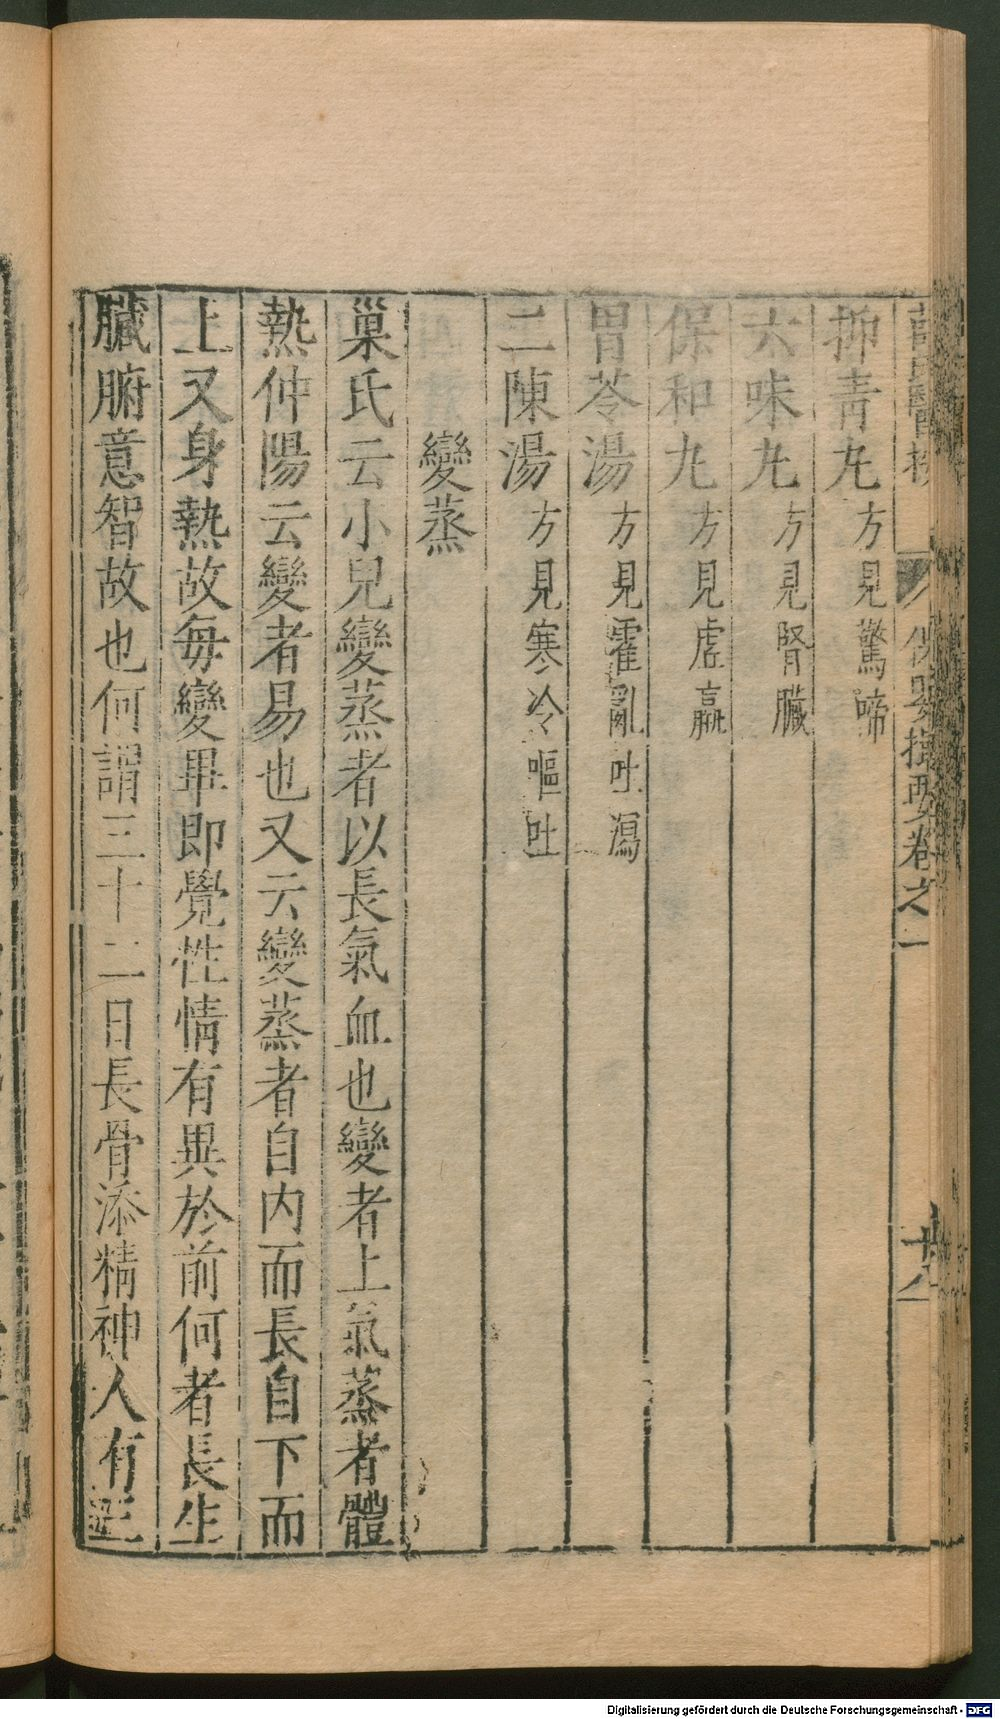 保嬰撮要卷之一
抑青丸方見驚啼
六味丸方見腎臟
保和丸方見虚羸
胃苓湯方見霍亂吐瀉
二陳湯方見寒冷嘔吐
變蒸
巢氏云小兒變蒸者以長氣血也變者上氣蒸者體
熱仲陽云變者易也又云變蒸者自内而長自下而
上又身熱故毎變畢即覺性情有異於前何者長生
臟腑意智故也何謂三十二日長骨添精神人有三
Digitalisierung gefördert durch die Deutsche Forschungsgemeinschaft - DFG